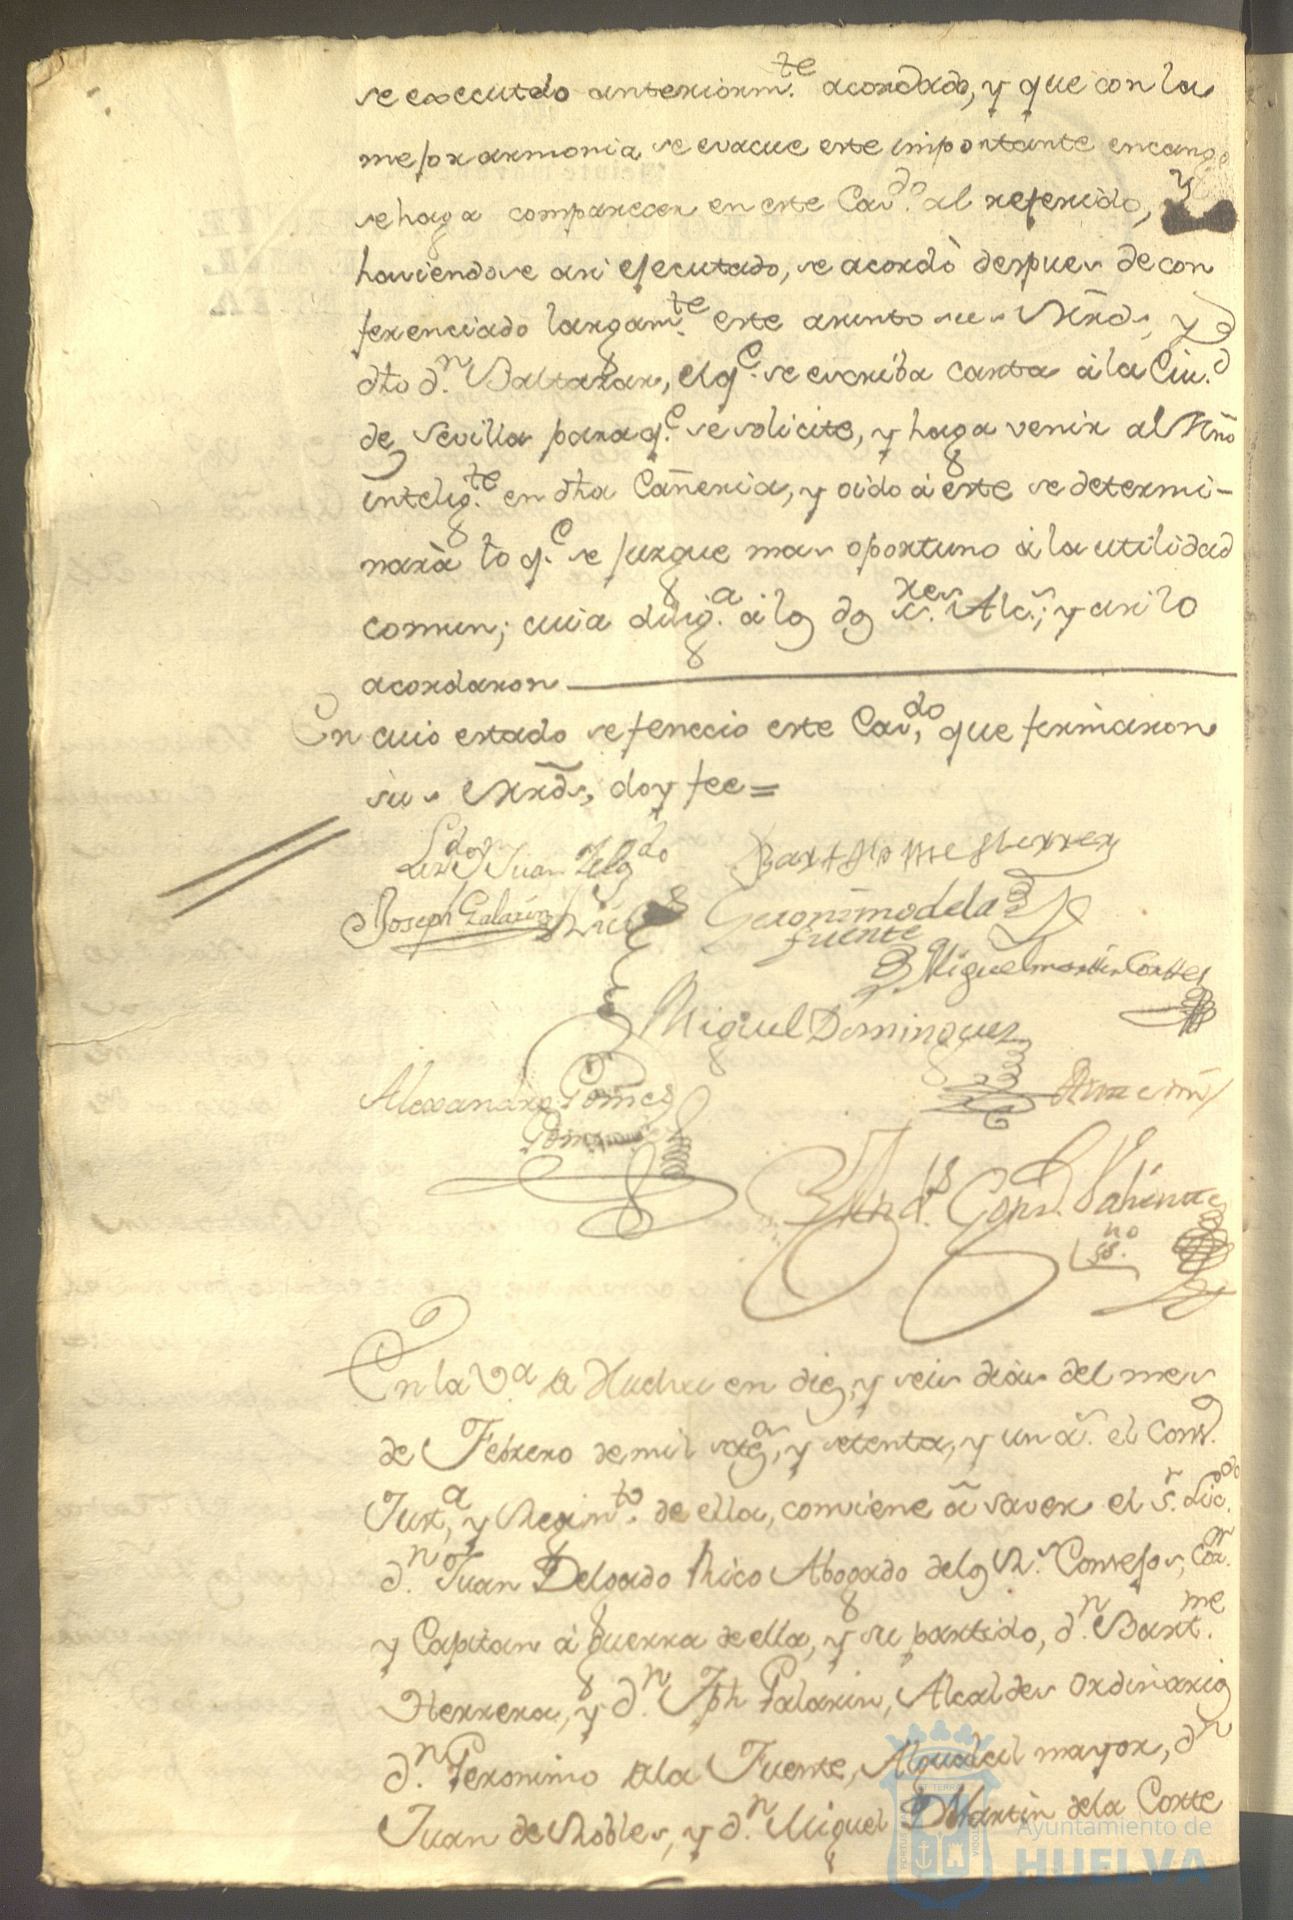 se executdo anteriorm.te acordado, y que con la
mejor armonia se evacue este importante encargo
se haga comparecer en este Cav.do al referido, y
haviendose asi ejecutado, se acordò despues de con
ferenciado largam.te este asunto sus Mrds, y
dho d.n Baltazar, el q.e se escriba carta à la Ciu.d
de Sevilla para q.e se solicite, y haga venir al Mro
intelig.te en dha Cañeria, y oido à este se determi-
narà lo q.e se jusgue mas oportuno à la utilidad
comun; cuia dilig.a à los dos s.res Alc.s; y asi lo
acordaron
En cuio estado se fenecio este Cav.do, que firmaron
sus Mrds, doy fee =
Lizdo Dn Juan Delgdo Rico
Barthlome Herrera
Joseph Galarin
Geronimo de la
fuente
Miguel martin Cortte
Miguel Dominguez
Alexandro Gomes
Ante mi
And.s Gonz. Valiente
ss.no
En la V.a de Huelva en diez, y seis dias del mes
de Febrero de mil setez.os, y setenta, y un a.s el Conz.o
Just.a, y Regim.to de ella, comviene à saver el s.r Lic.do
d.n Juan Delgado Rico Abogado delos R.s Consejos, Cor.r
y Capitan à Guerra de ella, y su partido, d.n Bart.me
Herrera, y d.n Jph Galarin, Alcaldes ordinarios
d.n Geronimo dela Fuente, Alguacil mayor, d.n
Juan de Robles, y d.n Miguel Martin dela Corte
Ayuntamiento de
HUELVA